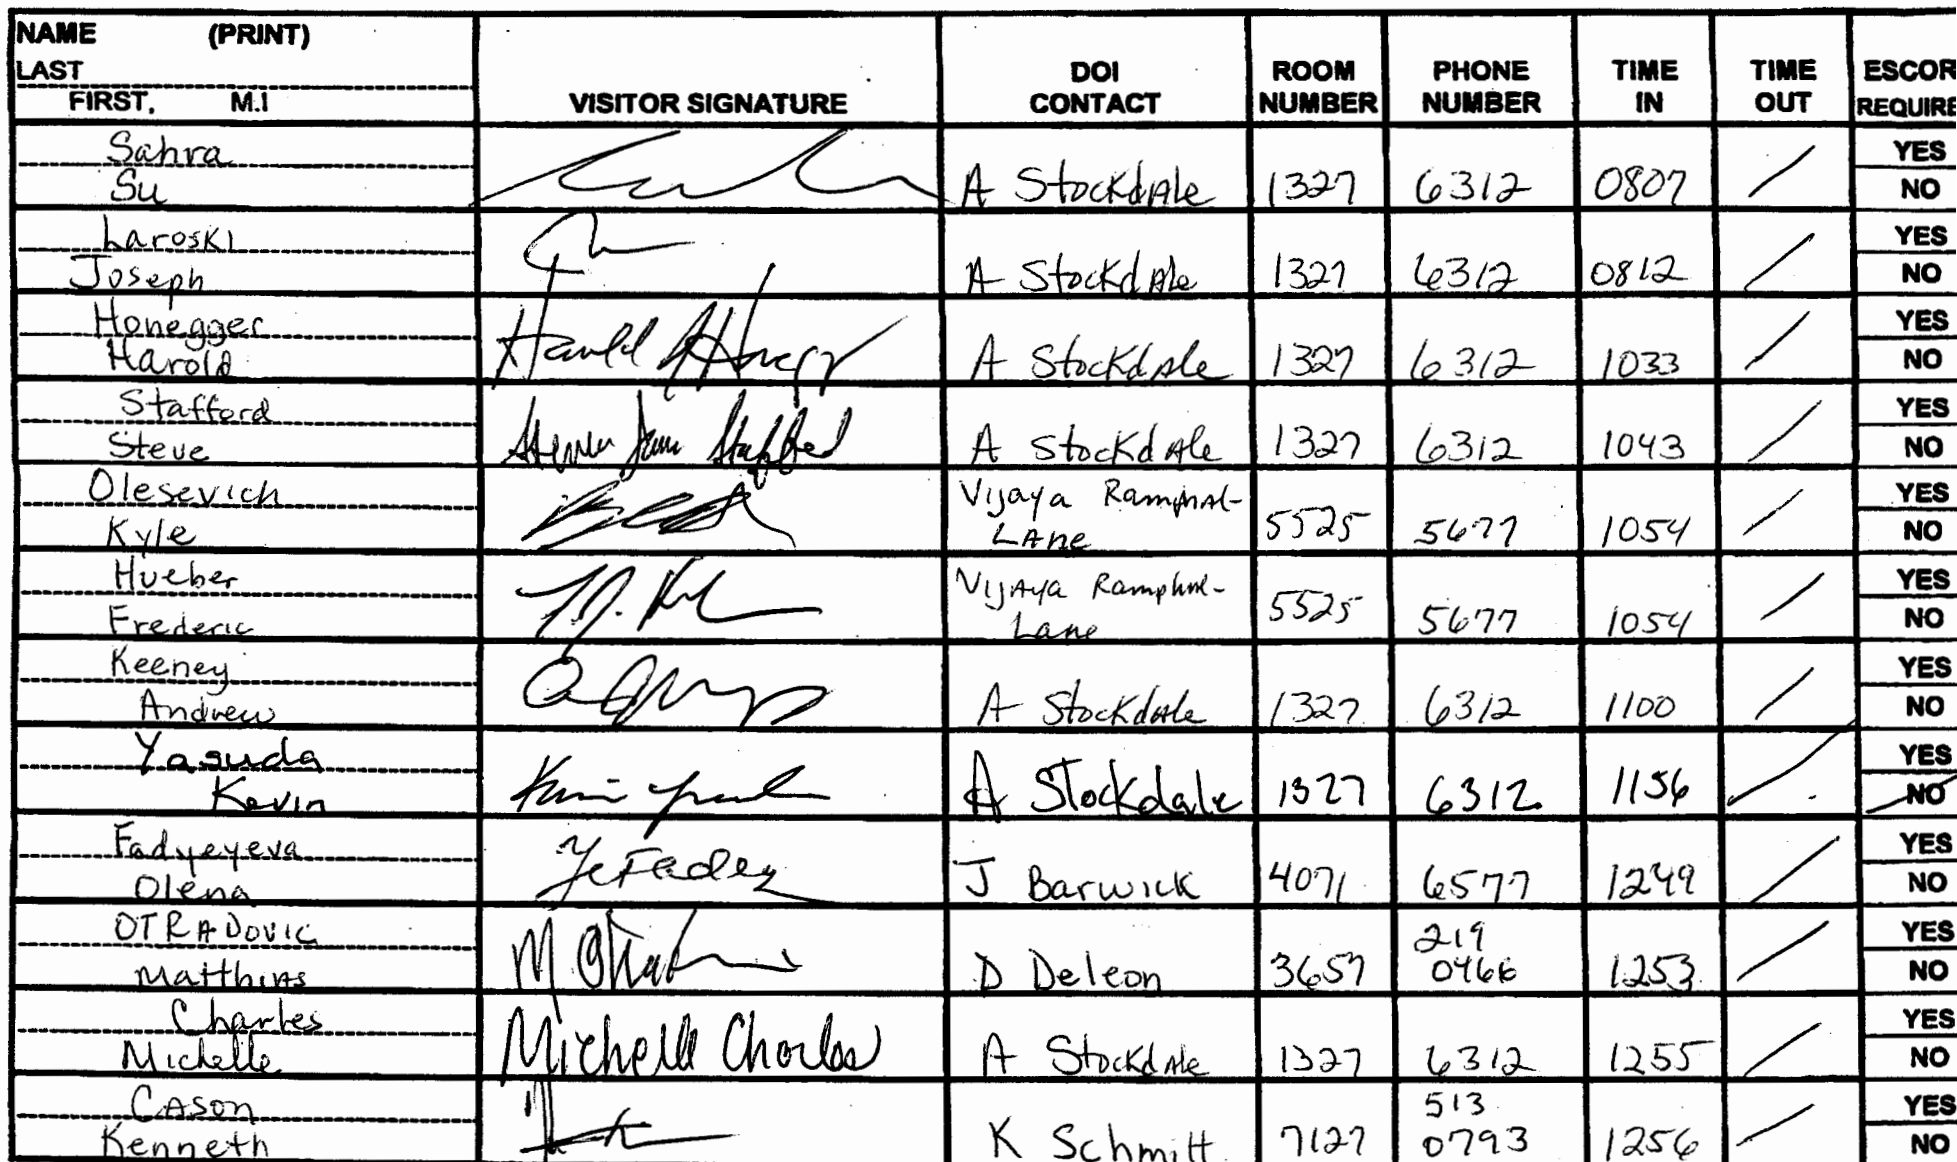 NAME (PRINT)
LAST
FIRST, M.I
VISITOR SIGNATURE
DOI CONTACT
ROOM NUMBER
PHONE NUMBER
TIME IN
TIME OUT
ESCOR
REQUIRE
Sahra
Su A Stockdale 1327 6312 0807 / YES NO
Laroski
Joseph A Stockdale 1327 6312 0812 / YES NO
Honegger
Harold A Stockdale 1327 6312 1033 / YES NO
Stafford
Steve A Stockdale 1327 6312 1043 / YES NO
Olesevich Vijaya Ramphal-
Kyle Lane 5525 5677 1054 / YES NO
Hueber Vijaya Ramphal-
Frederic Lane 5525 5677 1054 / YES NO
Keeney
Andrew A Stockdale 1327 6312 1100 / YES NO
Yasuda
Kevin A Stockdale 1327 6312 1156 / YES NO
Fadyeyeva
Olena J Barwick 4071 6577 1249 / YES NO
OTRADOVIC 219
Matthias D Deleon 3657 0466 1253 / YES NO
Charles
Michelle Michelle Charles A Stockdale 1327 6312 1255 / YES NO
Cason 513
Kenneth K Schmitt 7127 0793 1256 / YES NO